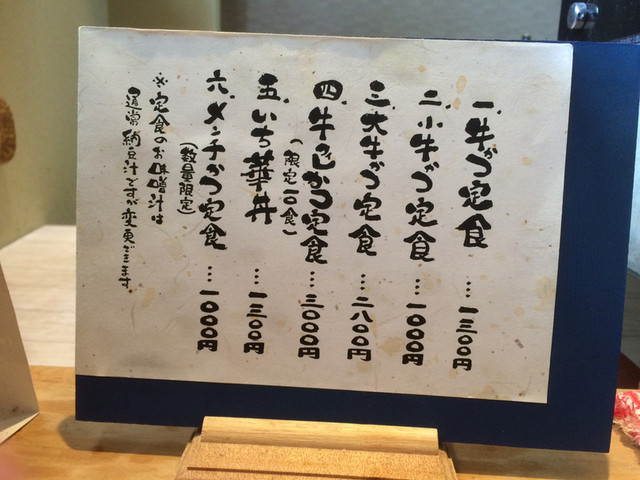 一、牛かつ定食…一三〇〇円
二、小牛かつ定食…一〇〇〇円
三、大牛かつ定食…二八〇〇円
四、牛ヒレかつ定食…三〇〇〇円
(限定一〇食)
五、いち華丼…一三〇〇円
六、メンチかつ定食…一〇〇〇円
(数量限定)
※定食のお味噌汁は
通常納豆汁ですが変更できます。